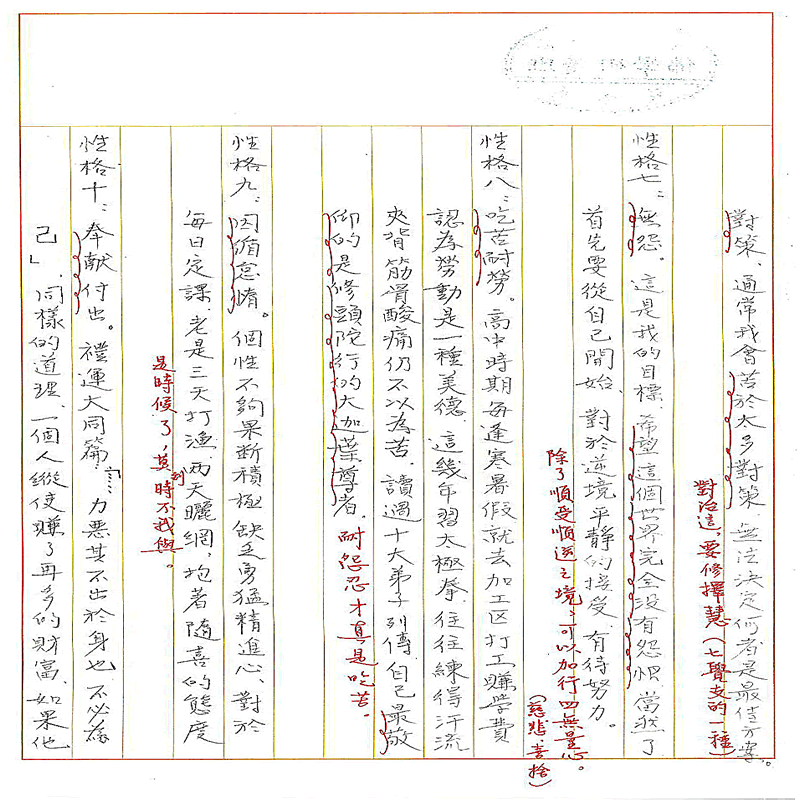 對策、通常我會苦於太多對策、無法決定何者是最佳方案。
對治這，要修擇慧（七覺支的一種）
性格七：無怨。這是我的目標、希望這個世界完全沒有怨恨、當然了
首先要從自己開始、對於逆境平靜的接受、有待努力。
除了順受順逆之境，可以加行四無量心。
（慈悲喜捨）
性格八：吃苦耐勞。高中時期每逢寒暑假就去加工区打工賺學費
認為勞動是一種美德、這幾年習太極拳、往往練得汗流
夾背筋骨酸痛仍不以為苦、讀過十大弟子列傳、自己最敬
仰的是修頭陀行的大迦葉尊者。
耐怨忍才真是吃苦。
性格九、因循怠惰。個性不夠果断積極缺乏勇猛精進心、對於
每日定課、老是三天打漁、兩天曬網、抱著隨喜的態度
是時候了，莫到時不我與。
性格十：奉献付出。禮運大同篇：「……力惡其不出於身也不必為
己」、同樣的道理、一個人縱使賺了再多的財富、如果他